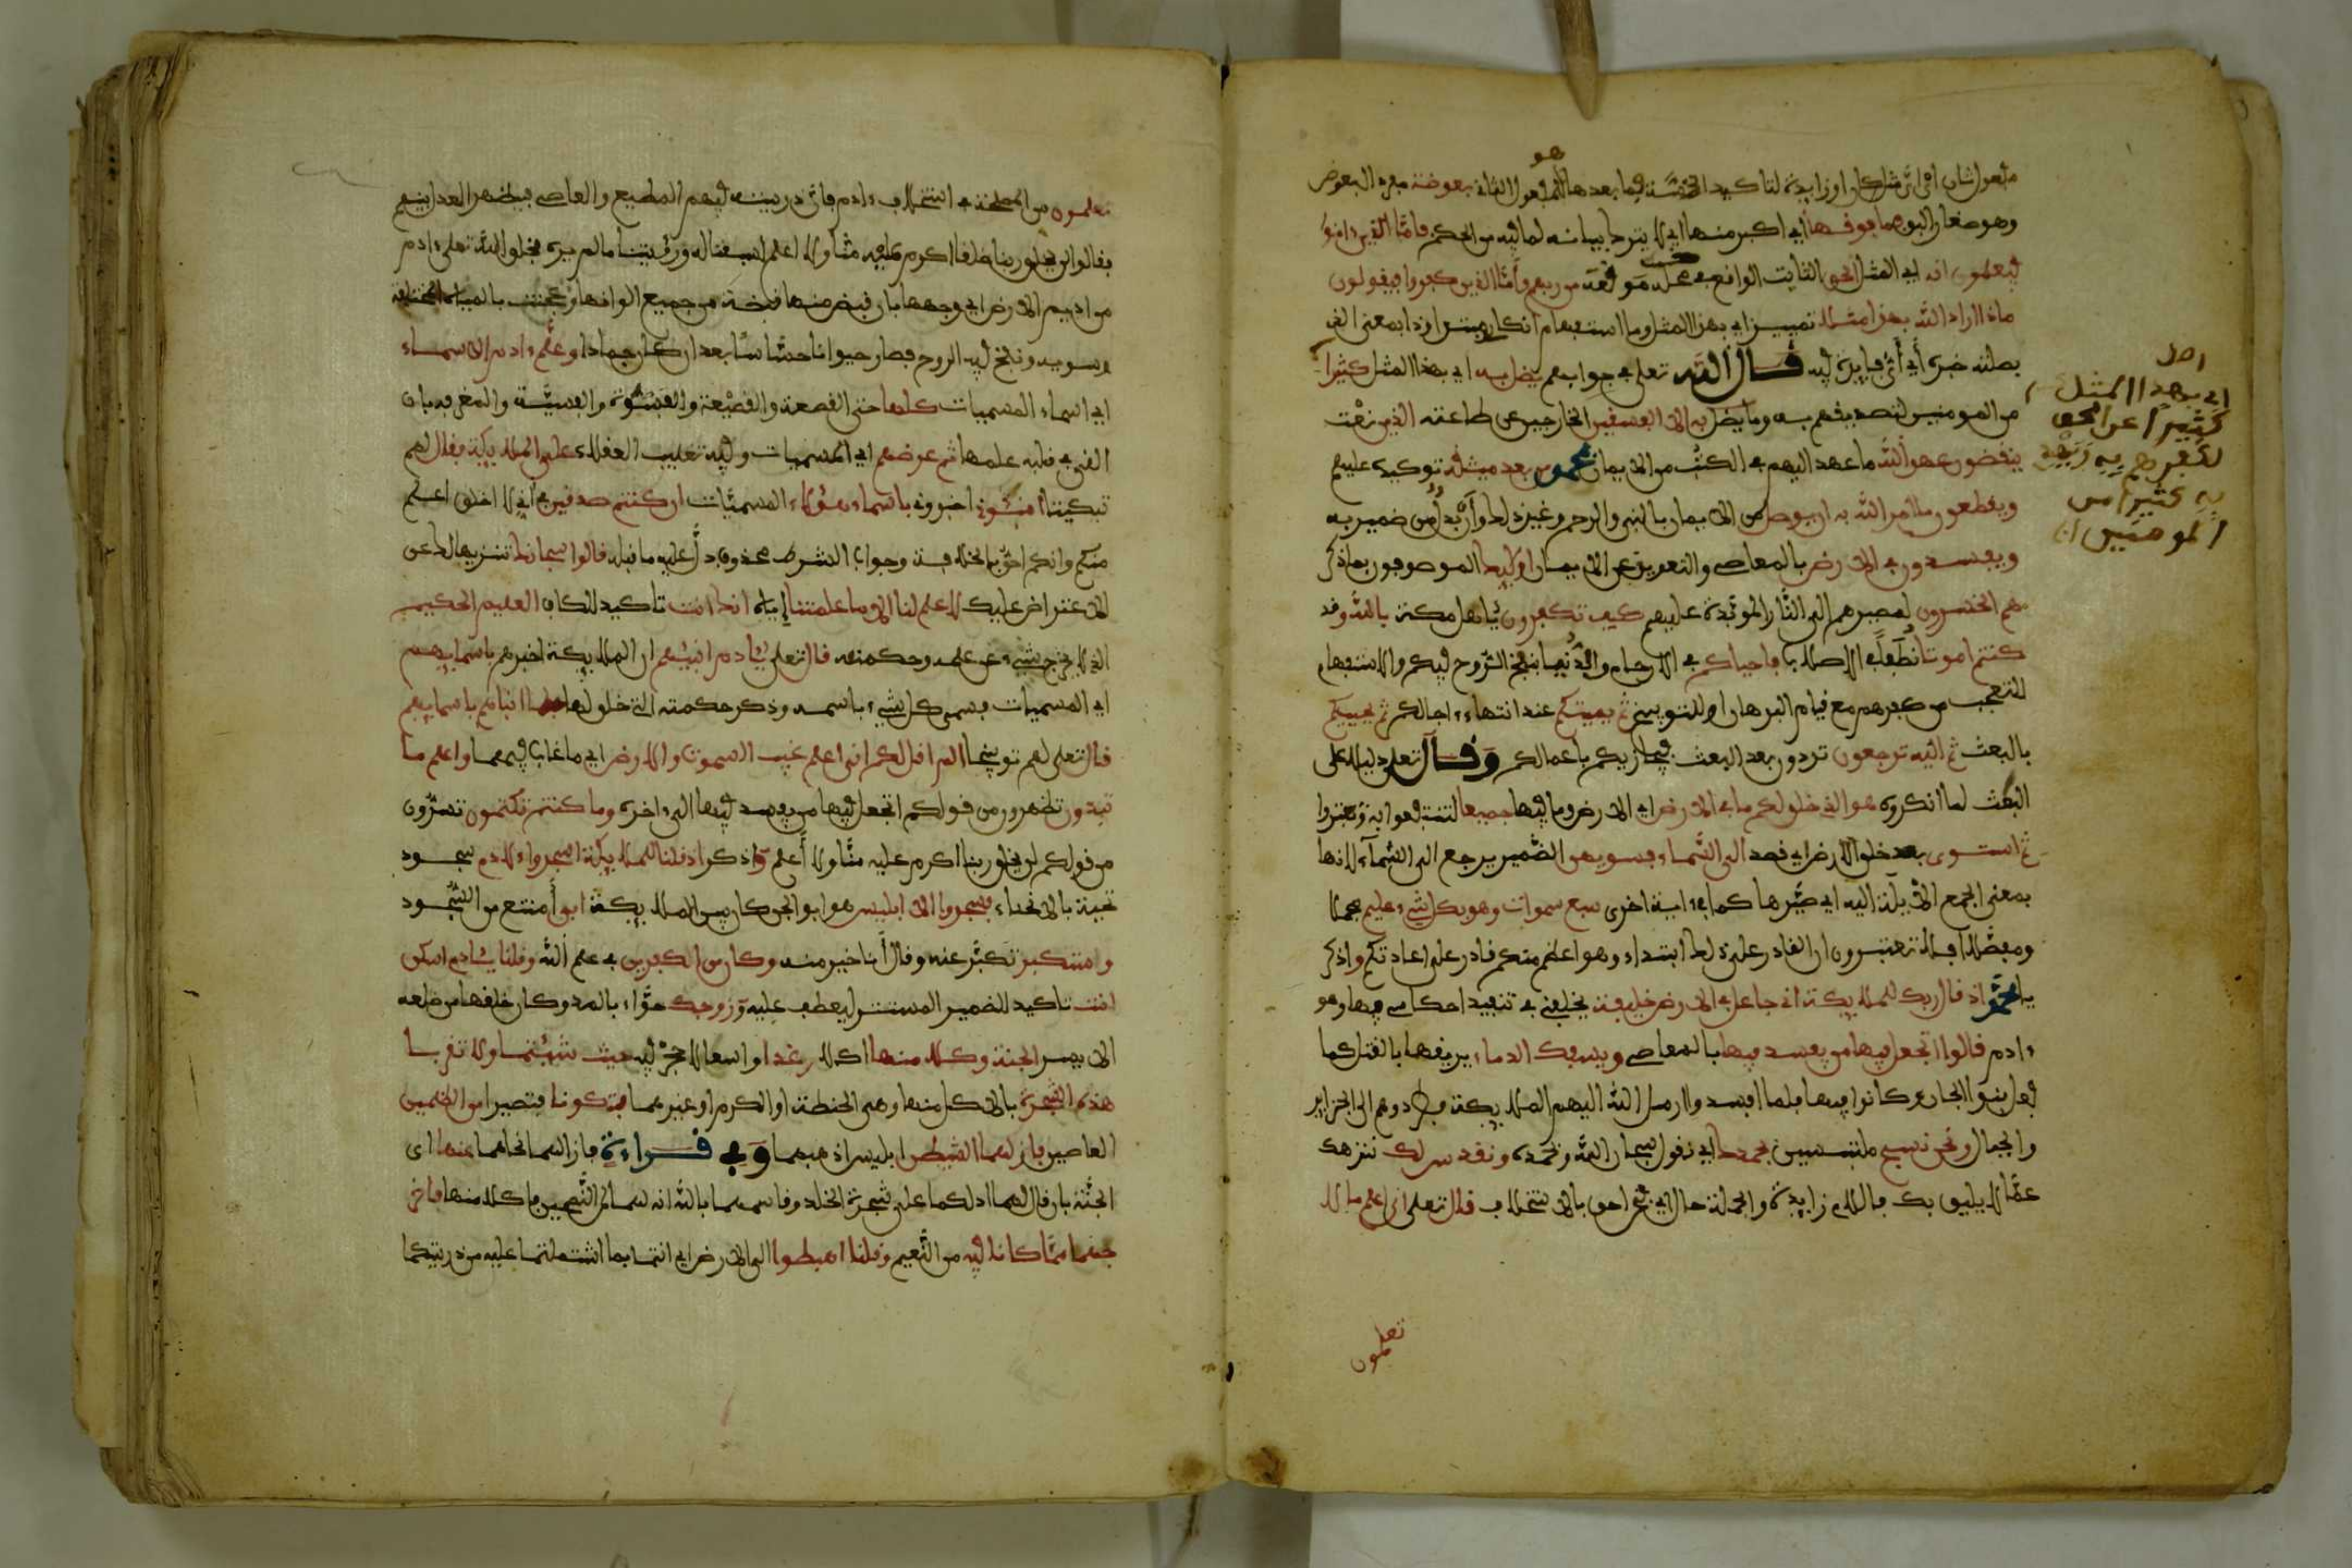 مفعول ثان اي اي مثل كان او زايدة لتاكيد الخسة فما بعدها هو المفعول الثاني بعوضة مفرد البعوض
وهو صغار البق فما فوقها اي اكبر منها اي لا يترك بيانه لما فيه من الحكم فاما الذين ءامنوا
فيعلمون انه اي المثل الحق الثابت الواقع في محله موقعه من ربهم واما الذين كفروا فيقولون
ماذا اراد الله بهذا مثلا تمييز اي بهذا المثل وما استفهام انكار مبتدا وذا بمعنى الذي
بصلته خبره اي اي فايدة فيه قال الله تعلى في جوابهم يضل به اي بهذا المثل كثيرا
اصل
اي بهذا المثل
كثيرا عن الحق
لكفرهم به ويهدي
به كثيرا من
المومنين
من المومنين لتصديقهم به وما يضل به الا الفسقين الخارجين عن طاعته الذين نعت
ينقضون عهد الله ما عهد اليهم في الكتب من الايمان بمحمد من بعد ميثقه توكيده عليهم
ويقطعون ما امر الله به ان يوصل من الايمان بالنبي والرحم وغير ذلك وان بدل من ضمير به
ويفسدون في الارض بالمعاصي والتعويق عن الايمان اوليك الموصوفون بما ذكر
هم الخسرون لمصيرهم الى النار الموبدة عليهم كيف تكفرون ياهل مكة بالله وقد
كنتم اموتا نطفا في الاصلاب فاحياكم في الارحام والدنيا بنفخ الروح فيكم والاستفهام
للتعجب من كفرهم مع قيام البرهان او للتوبيخ ثم يميتكم عند انتهاء اجالكم ثم يحييكم
بالبعث ثم اليه ترجعون تردون بعد البعث فيجازيكم باعمالكم وقال تعلى دليلا على
البعث لما انكروه هو الذي خلق لكم ما في الارض اي الارض وما فيها جميعا لتنتفعوا به وتعتبروا
ثم استوى بعد خلق الارض اي قصد الى السماء فسويهن الضمير يرجع الى السماء لانها
بمعنى الجمع الايلة اليه اي صيرها كما في اية اخرى سبع سموات وهو بكل شيء عليم مجملا
ومفصلا افلا تعتبرون ان القادر على خلق ذلك ابتداء وهو اعظم منكم قادر على اعادتكم واذكر
يا محمد اذ قال ربك للمليكة اني جاعل في الارض خليفة يخلفني في تنفيذ احكامي فيها وهو
ءادم قالوا اتجعل فيها من يفسد فيها بالمعاصي ويسفك الدماء يريقها بالقتل كما
فعل بنوا الجان وكانوا فيها فلما افسدوا ارسل الله اليهم المليكة فطردوهم الى الجزاير
والجبال ونحن نسبح ملتبسين بحمدك اي نقول سبحان الله وبحمده ونقدس لك ننزهك
عما لا يليق بك فاللام زايدة والجملة حال اي فنحن احق بالاستخلاف قال تعلى اني اعلم ما لا
تعلمون
تعلمون من المصلحة في استخلاف ءادم فان ذريته فيهم المطيع والعاصي فيظهر العدل بينهم
فقالوا لن يخلق ربنا خلقا اكرم عليه منا ولا اعلم لسبقنا له ورؤيتنا ما لم يره فخلق الله تعلى ءادم
من اديم الارض اي وجهها بان قبض منها قبضة من جميع الوانها وعجنت بالمياه المختلفة
وسويه ونفخ فيه الروح فصار حيوانا حساسا بعد ان كان جمادا وعلم ءادم الاسماء
اي اسماء المسميات كلها حتى القصعة والقصيعة والفسوة والفسية والمغرفة بان
القى في قلبه علمها ثم عرضهم اي المسميات وفيه تغليب العقلاء على المليكة فقال لهم
تبكيتا انبئوني اخبروني باسماء هؤلاء المسميات ان كنتم صدقين في اني لا اخلق اعلم
منكم وانكم احق بالخلافة وجواب الشرط محذوف دل عليه ما قبله قالوا سبحانك تنزيها لك عن
الاعتراض عليك لا علم لنا الا ما علمتنا اياه انك انت تاكيد للكاف العليم الحكيم
الذي لا يخرج شيء عن علمه وحكمته قال تعلى يئادم انبئهم اي المليكة اخبرهم باسمايهم
اي المسميات فسمى كل شيء باسمه وذكر حكمته التي خلق لها فلما انباهم باسمايهم
قال تعلى لهم توبيخا الم اقل لكم اني اعلم غيب السموت والارض اي ما غاب فيهما واعلم ما
تبدون تظهرون من قولكم اتجعل فيها من يفسد فيها الى ءاخره وما كنتم تكتمون تسرون
من قولكم لن يخلق ربنا اكرم عليه منا ولا اعلم واذكر اذ قلنا للمليكة اسجدوا لادم سجود
تحية بالانحناء فسجدوا الا ابليس هو ابو الجن كان بين المليكة ابى امتنع من السجود
واستكبر تكبر عنه وقال انا خير منه وكان من الكفرين في علم الله وقلنا يئادم اسكن
انت تاكيد للضمير المستتر ليعطف عليه وزوجك حواء بالمد وكان خلقها من ضلعه
الايسر الجنة وكلا منها اكلا رغدا واسعا لا حجر فيه حيث شئتما ولا تقربا
هذه الشجرة بالاكل منها وهي الحنطة او الكرم او غيرهما فتكونا فتصيرا من الظلمين
العاصين فازلهما الشيطن ابليس اذهبهما وفي قراءة فازالهما نحاهما عنها اي
الجنة بان قال لهما ادلكما على شجرة الخلد وقاسمهما بالله انه لهما لمن النصحين فاكلا منها فاخر
جهما مما كانا فيه من النعيم وقلنا اهبطوا الى الارض اي انتما بما اشتملتما عليه من ذريتكما